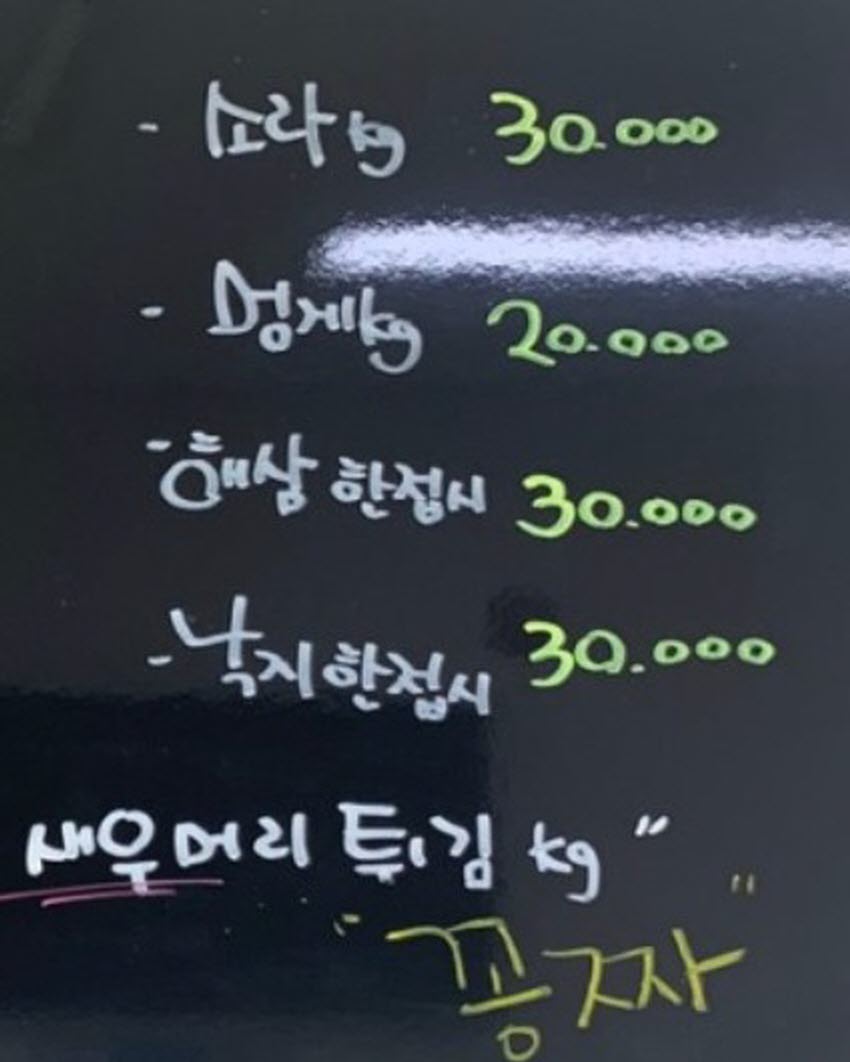 - 소라 kg 30.000
- 멍게 kg 20.000
- 해삼 한접시 30.000
- 낙지 한접시 30.000
새우머리 튀김 kg "
"꽁짜"